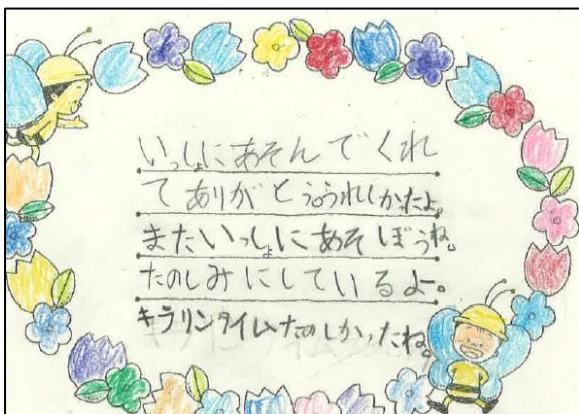 いっしょにあそんでくれ
てありがとう。うれしかったよ。
またいっしょにあそぼうね。
たのしみにしているよー。
キラリンタイムたのしかったね。